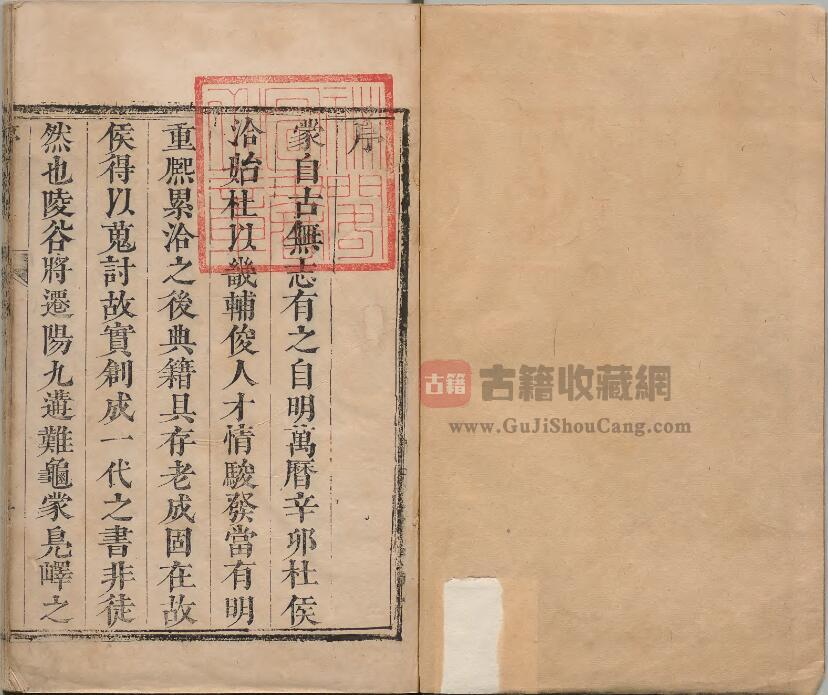 序
蒙自古無志有之自明萬曆辛卯杜侯
洽始杜以畿輔俊人才情駿發當有明
重熈累洽之後典籍具存老成固在故
侯得以蒐討故實創成一代之書非徒
然也陵谷將遷陽九遘難龜蒙鳧嶧之
古籍
古籍收藏網
www.GuJiShouCang.com